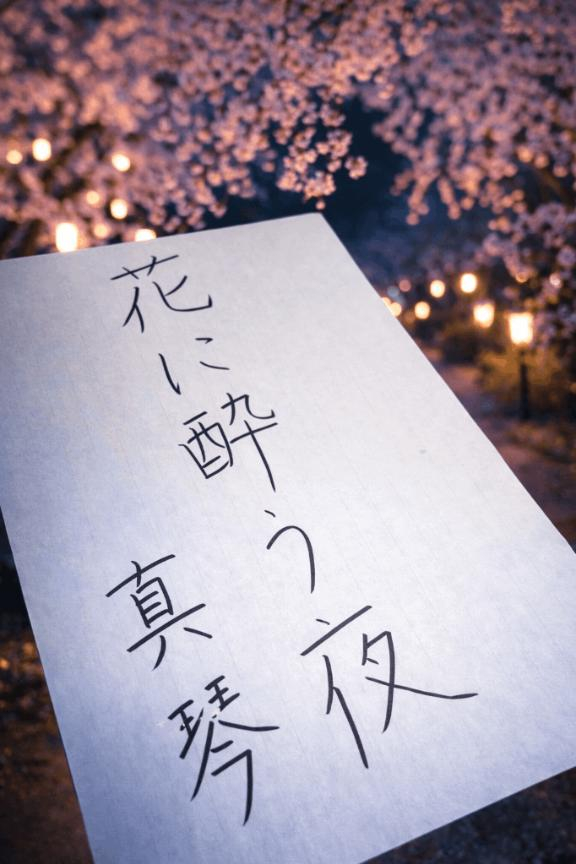 花に酔う夜
真琴